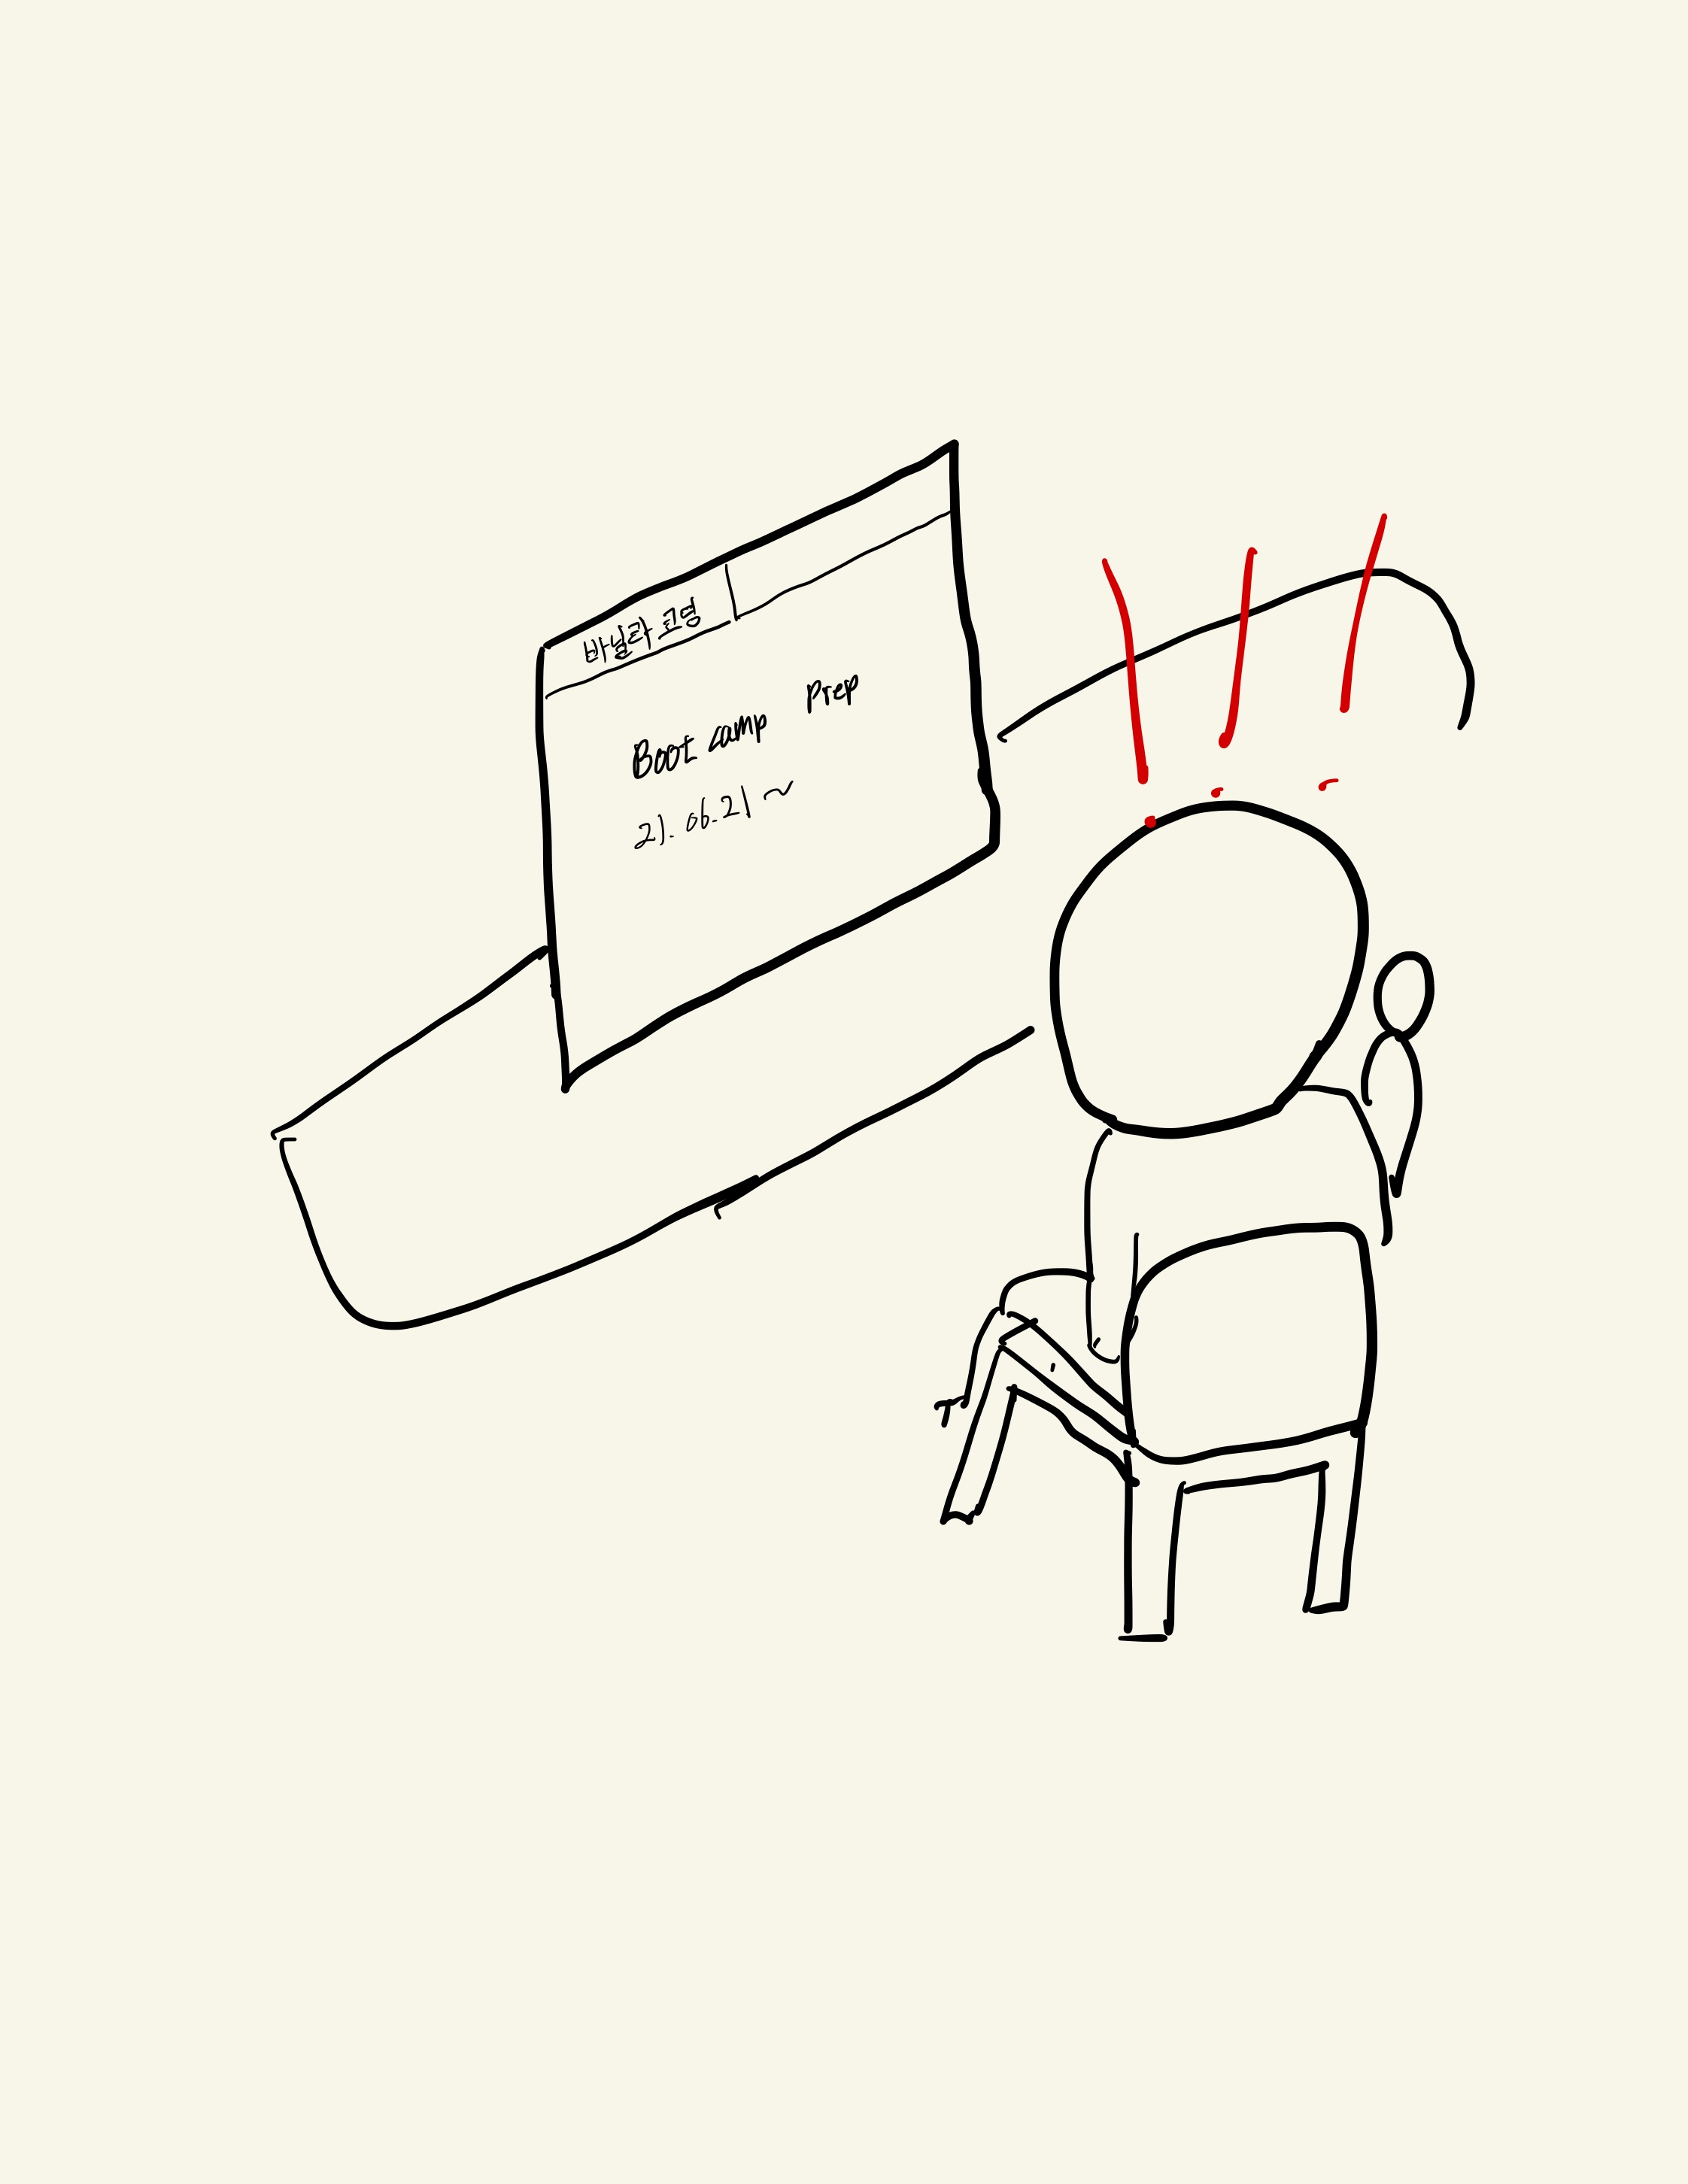 바닐라코딩
Boot camp prep
21. 06. 21 ~
!!!